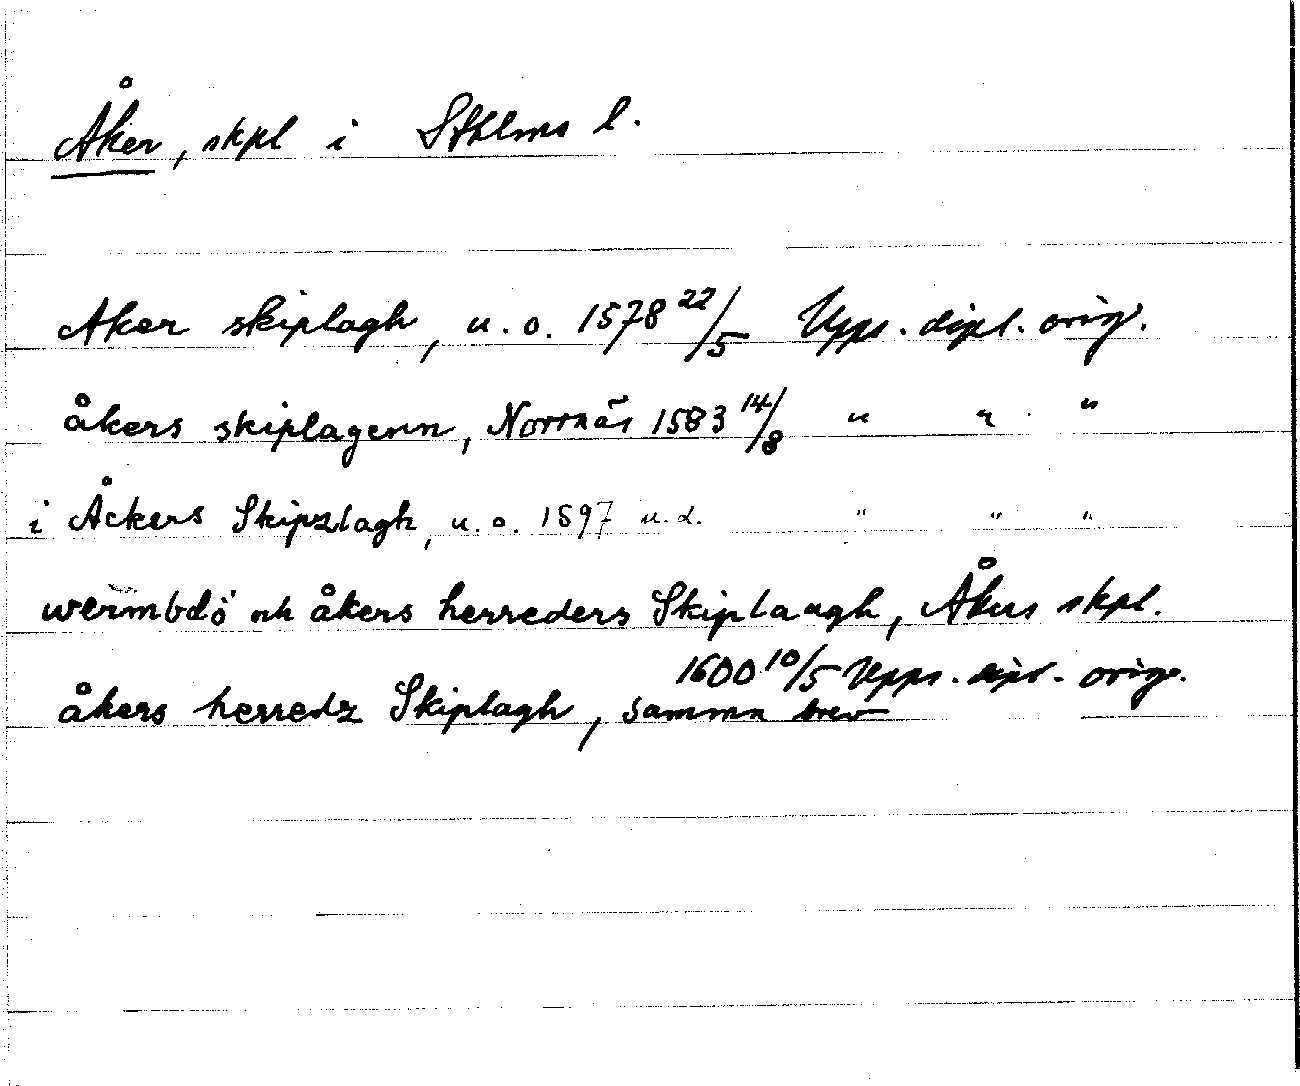 Åker, skpl i Sthlms l.
Aker skiplagh, u.o. 1578 22/5 Upps. dipl. orig.
åkers skiplagenn, Norrnäs 1583 14/8 " " "
i Åckers Skipzlagh, u.o. 1597 u.d. " " "
wermbdö och åkers herreders Skiplaugh, Åkers skpl.
1600 10/5 Upps. dipl. orig.
åkers herredz Skiplagh, samma brev